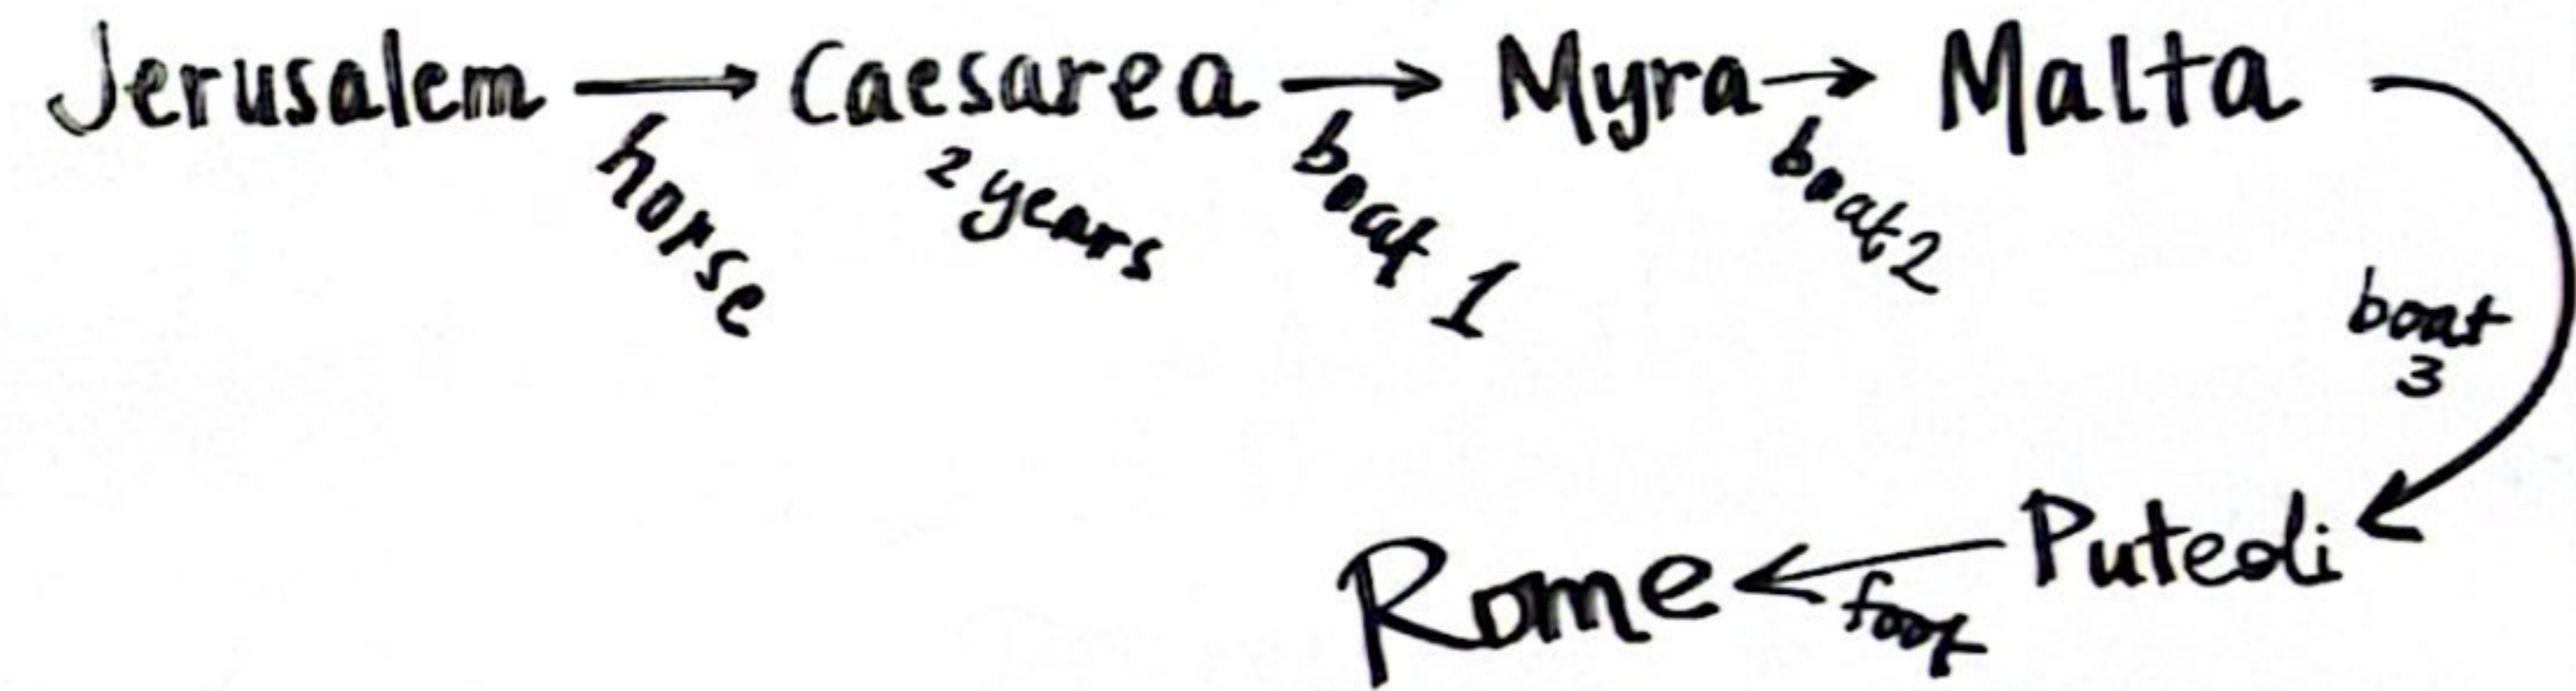 Jerusalem → Caesarea → Myra → Malta
horse
2 years
boat 1
boat 2
boat
3
Rome ← Puteoli
foot